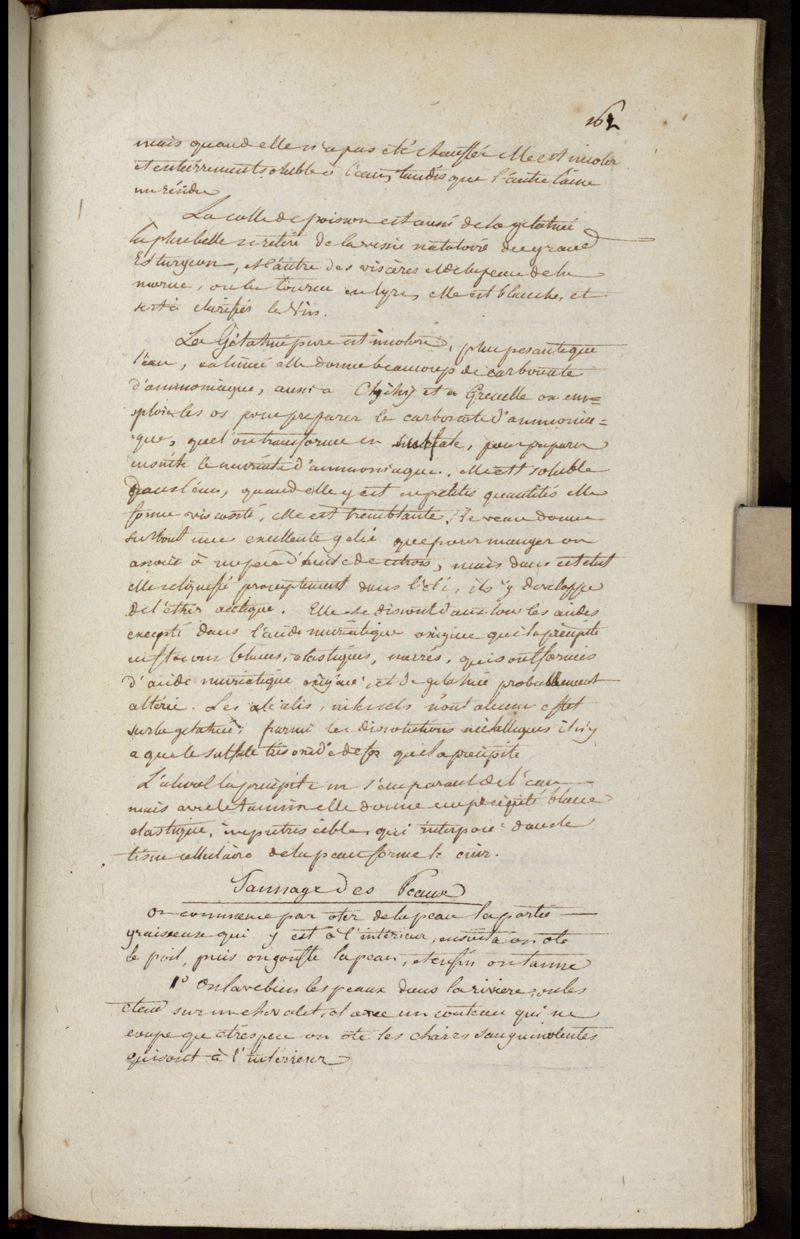 162
mais quand elle n'a pas été chauffée elle est incolor
et entierrement soluble à l'eau, tandis que l'autre laisse
un résidu
La colle de poisson est aussi de la gelatine
la plus belle se retire de la vessie natatoire du grand
Esturgeon, et l'autre des viscères et de la peau de la
morue, on la tourne en lyre, elle est blanche, et
sert à clarifier le Vin.
La Gélatine pure est incolore, plus pesante que
l'eau, calciné elle donne beaucoup de carbonate
d'ammoniaque, aussi a Clichy et a Grenelle on em=
=ploie les os pour preparer le carbonate d'ammonia=
=que, que l'on transforme en sulfate, pour preparer
ensuite le muriate d'ammoniaque. elle est soluble
dans l'eau, quand elle y est en petites quantités elle
forme viscosité, elle est tremblante, le veau donne
surtout une excellente gelée que pour manger on
associe à un peu d'huile de citron, mais dans cet état
elle se liquefie promptement dans l'été, il s'y developpe
de l'éther acétique. Elle se dissout dans tous les acides
excepté dans l'acide muriatique oxigine qui la précipite
en flocons blancs, elastiques, nacrés, qui sont formés
d'acide muriatique oxigine, et de gelatine probablement
altérée. Les alcalis, ni les sels n'ont aucun effet
sur la gelatine; parmi les dissolutions métalliques il n'y
a que le sulfate tres oxidé de fer qui la precipite
L'alcool la precipite en s'emparant de l'eau
mais avec le tannin elle donne un précipité blanc
elastique, imputrescible, qui interposé dans le
tissu cellulaire de la peau forme le cuir.
Tannage des Peaux
On commence par oter de la peau la partie
graisseuse qui y est à l'intérieur, ensuite on ote
le poil, puis on gonfle la peau, et enfin on tanne
1° On lave bien les peaux dans la riviere, on les
étend sur un chevalet, et avec un couteau qui ne
coupe que très peu on ote les chairs sanguinolentes
qui sont à l'intérieur